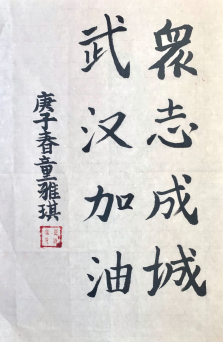 眾志成城
武汉加油
庚子春童雅琪